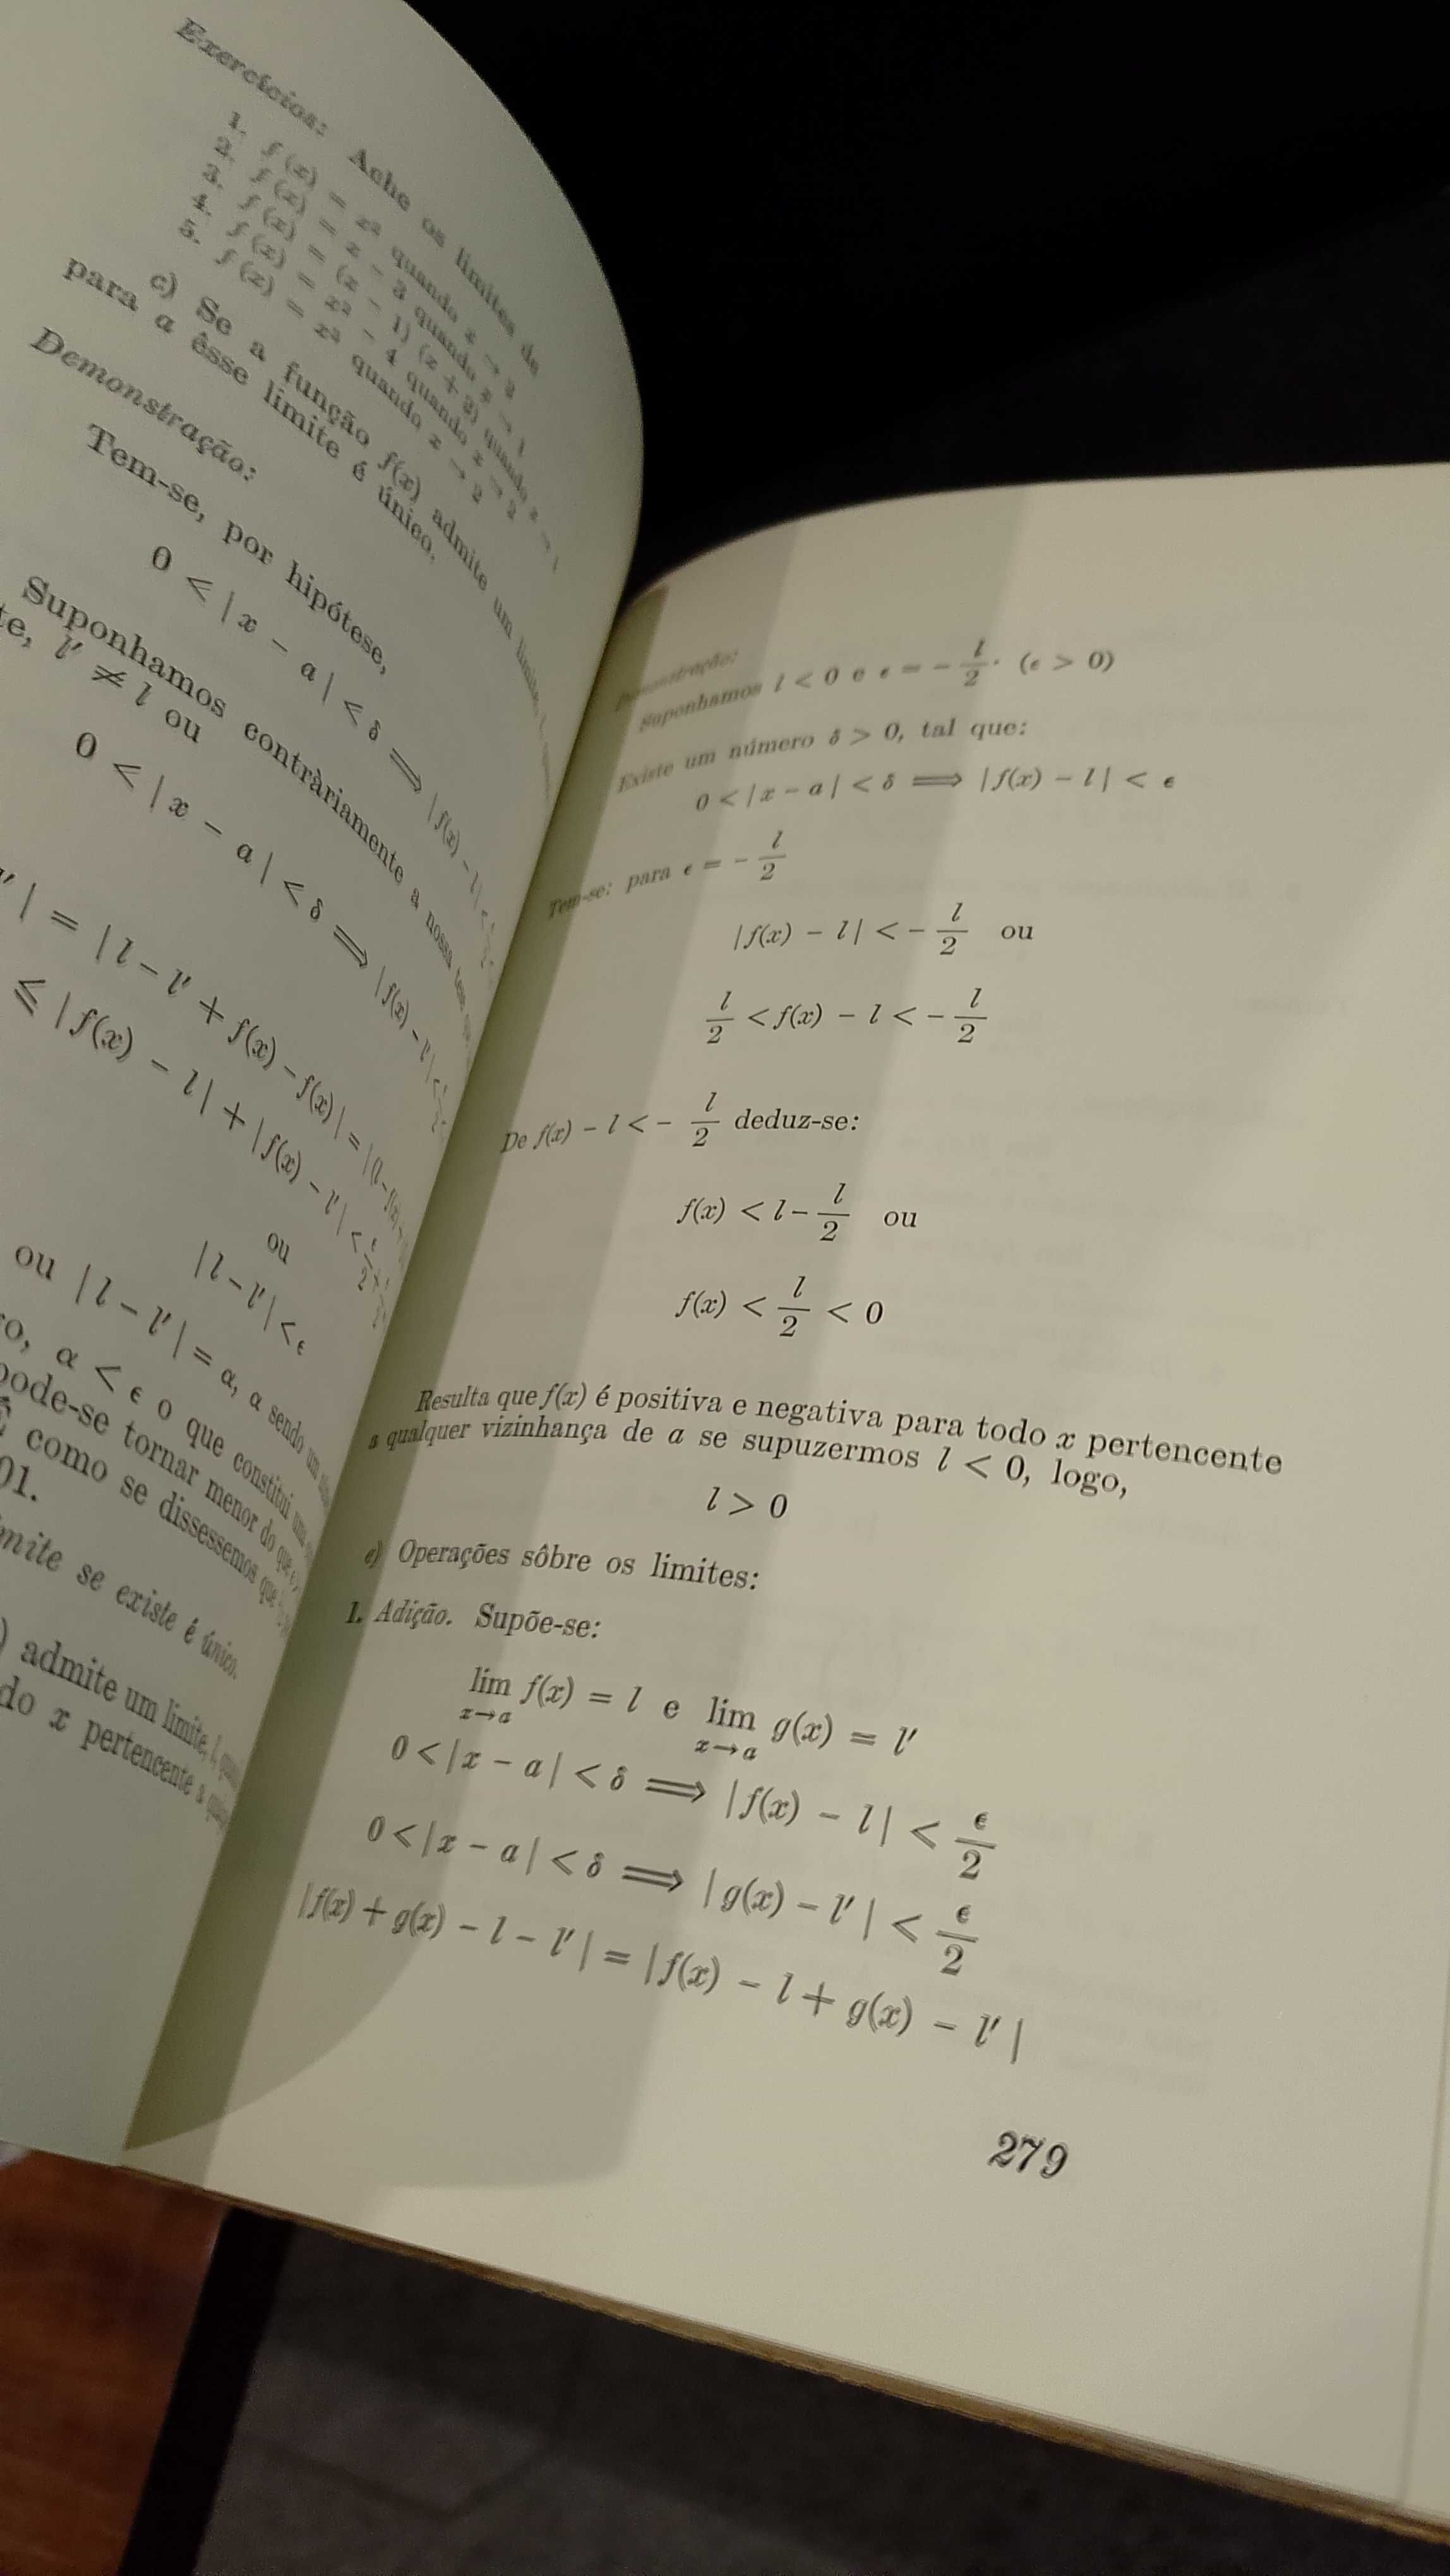 Exercícios: Ache os limites de
1. f(x) = x² quando x → 3
2. f(x) = x − 3 quando x → 1
3. f(x) = (x − 1) (x + 2) quando x → 1
4. f(x) = x² − 4 quando x → 2
5. f(x) = x³ quando x → 2
c) Se a função f(x) admite um limite, l,
para a êsse limite é único.
Demonstração:
Tem-se, por hipótese,
0 < | x − a | < δ ⟹ | f(x) − l | <
Suponhamos contràriamente a nossa tese que,
te, l′ ≠ l ou
0 < | x − a | < δ ⟹ | f(x) − l′ | <
′ | = | l − l′ + f(x) − f(x) | = | (l − f(x)
≤ | f(x) − l | + | f(x) − l′ | < ε/2 +
ou
| l − l′ | < ε
ou | l − l′ | = α, α sendo um
o, α < ε o que constitui
pode-se tornar menor do que
É como se dissessemos que
01.
mite se existe é único.
) admite um limite, l,
do x pertencente a
Demonstração:
Suponhamos l < 0 e ε = − l/2. (ε > 0)
Existe um número δ > 0, tal que:
0 < | x − a | < δ ⟹ | f(x) − l | < ε
Tem-se: para ε = − l/2
| f(x) − l | < − l/2 ou
l/2 < f(x) − l < − l/2
De f(x) − l < − l/2 deduz-se:
f(x) < l − l/2 ou
f(x) < l/2 < 0
Resulta que f(x) é positiva e negativa para todo x pertencente
a qualquer vizinhança de a se supuzermos l < 0, logo,
l > 0
e) Operações sôbre os limites:
1. Adição. Supõe-se:
lim x→a f(x) = l e lim x→a g(x) = l′
0 < | x − a | < δ ⟹ | f(x) − l | < ε/2
0 < | x − a | < δ ⟹ | g(x) − l′ | < ε/2
| f(x) + g(x) − l − l′ | = | f(x) − l + g(x) − l′ |
279